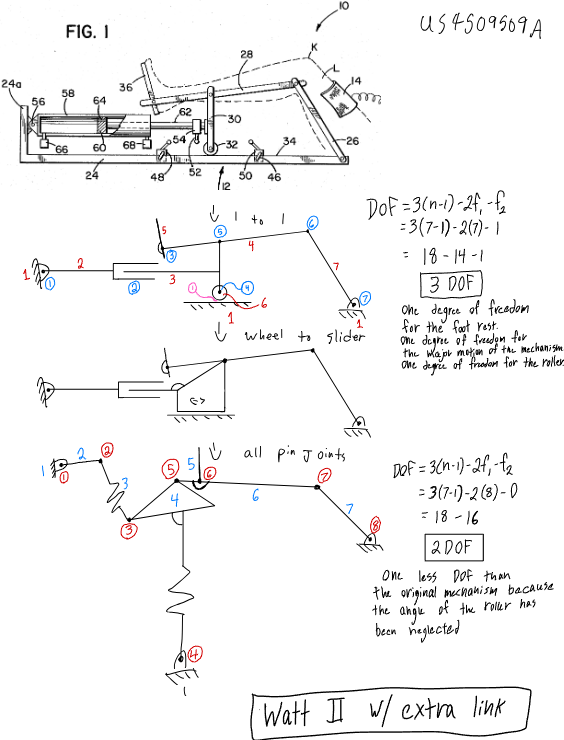 10
US4509509A
FIG. 1
K
28
L
14
36
24a
58
64
56
62
30
34
26
54
66
60
68
32
24
48
52
50
46
12
1 to 1
5
5
6
3
4
1
2
3
7
1
2
4
1
6
1
7
1
DOF = 3(n-1)-2f₁-f₂
= 3(7-1)-2(7)-1
= 18-14-1
3 DOF
One degree of freedom
for the foot rest.
One degree of freedom for
the major motion of the mechanism
One degree of freedom for the roller
wheel to slider
all pin joints
1
2
2
1
3
3
5
5
6
4
6
7
7
8
4
1
DOF = 3(n-1)-2f₁-f₂
= 3(7-1)-2(8)-0
= 18-16
2 DOF
One less DOF than
the original mechanism because
the angle of the roller has
been neglected
Watt II w/ extra link